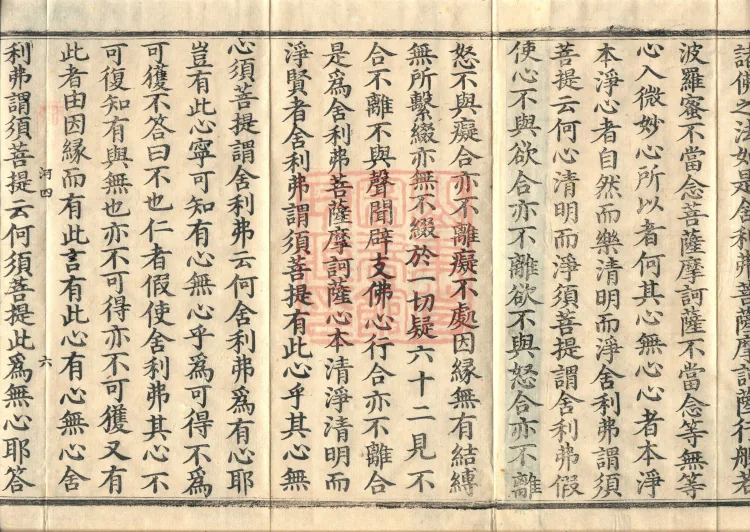 諸佛之法如是舍利弗菩薩摩訶薩行般若
波羅蜜不當念菩薩摩訶薩不當念等無等
心入微妙心所以者何其心無心心者本淨
本淨心者自然而樂清明而淨舍利弗謂須
菩提云何心清明而淨須菩提謂舍利弗假
使心不與欲合亦不離欲不與怒合亦不離
怒不與癡合亦不離癡不處因緣無有結縛
無所繫綴亦無不綴於一切疑六十二見不
合不離不與聲聞辟支佛心行合亦不離合
是爲舍利弗菩薩摩訶薩心本清淨清明而
淨賢者舍利弗謂須菩提有此心乎其心無
心須菩提謂舍利弗云何舍利弗爲有心耶
豈有此心寧可知有心無心乎爲可得不爲
可獲不答曰不也仁者假使舍利弗其心不
可復知有與無也亦不可得亦不可獲又有
此者由因緣而有此言有此心有心無心舍
河四 六
利弗謂須菩提云何須菩提此爲無心耶答